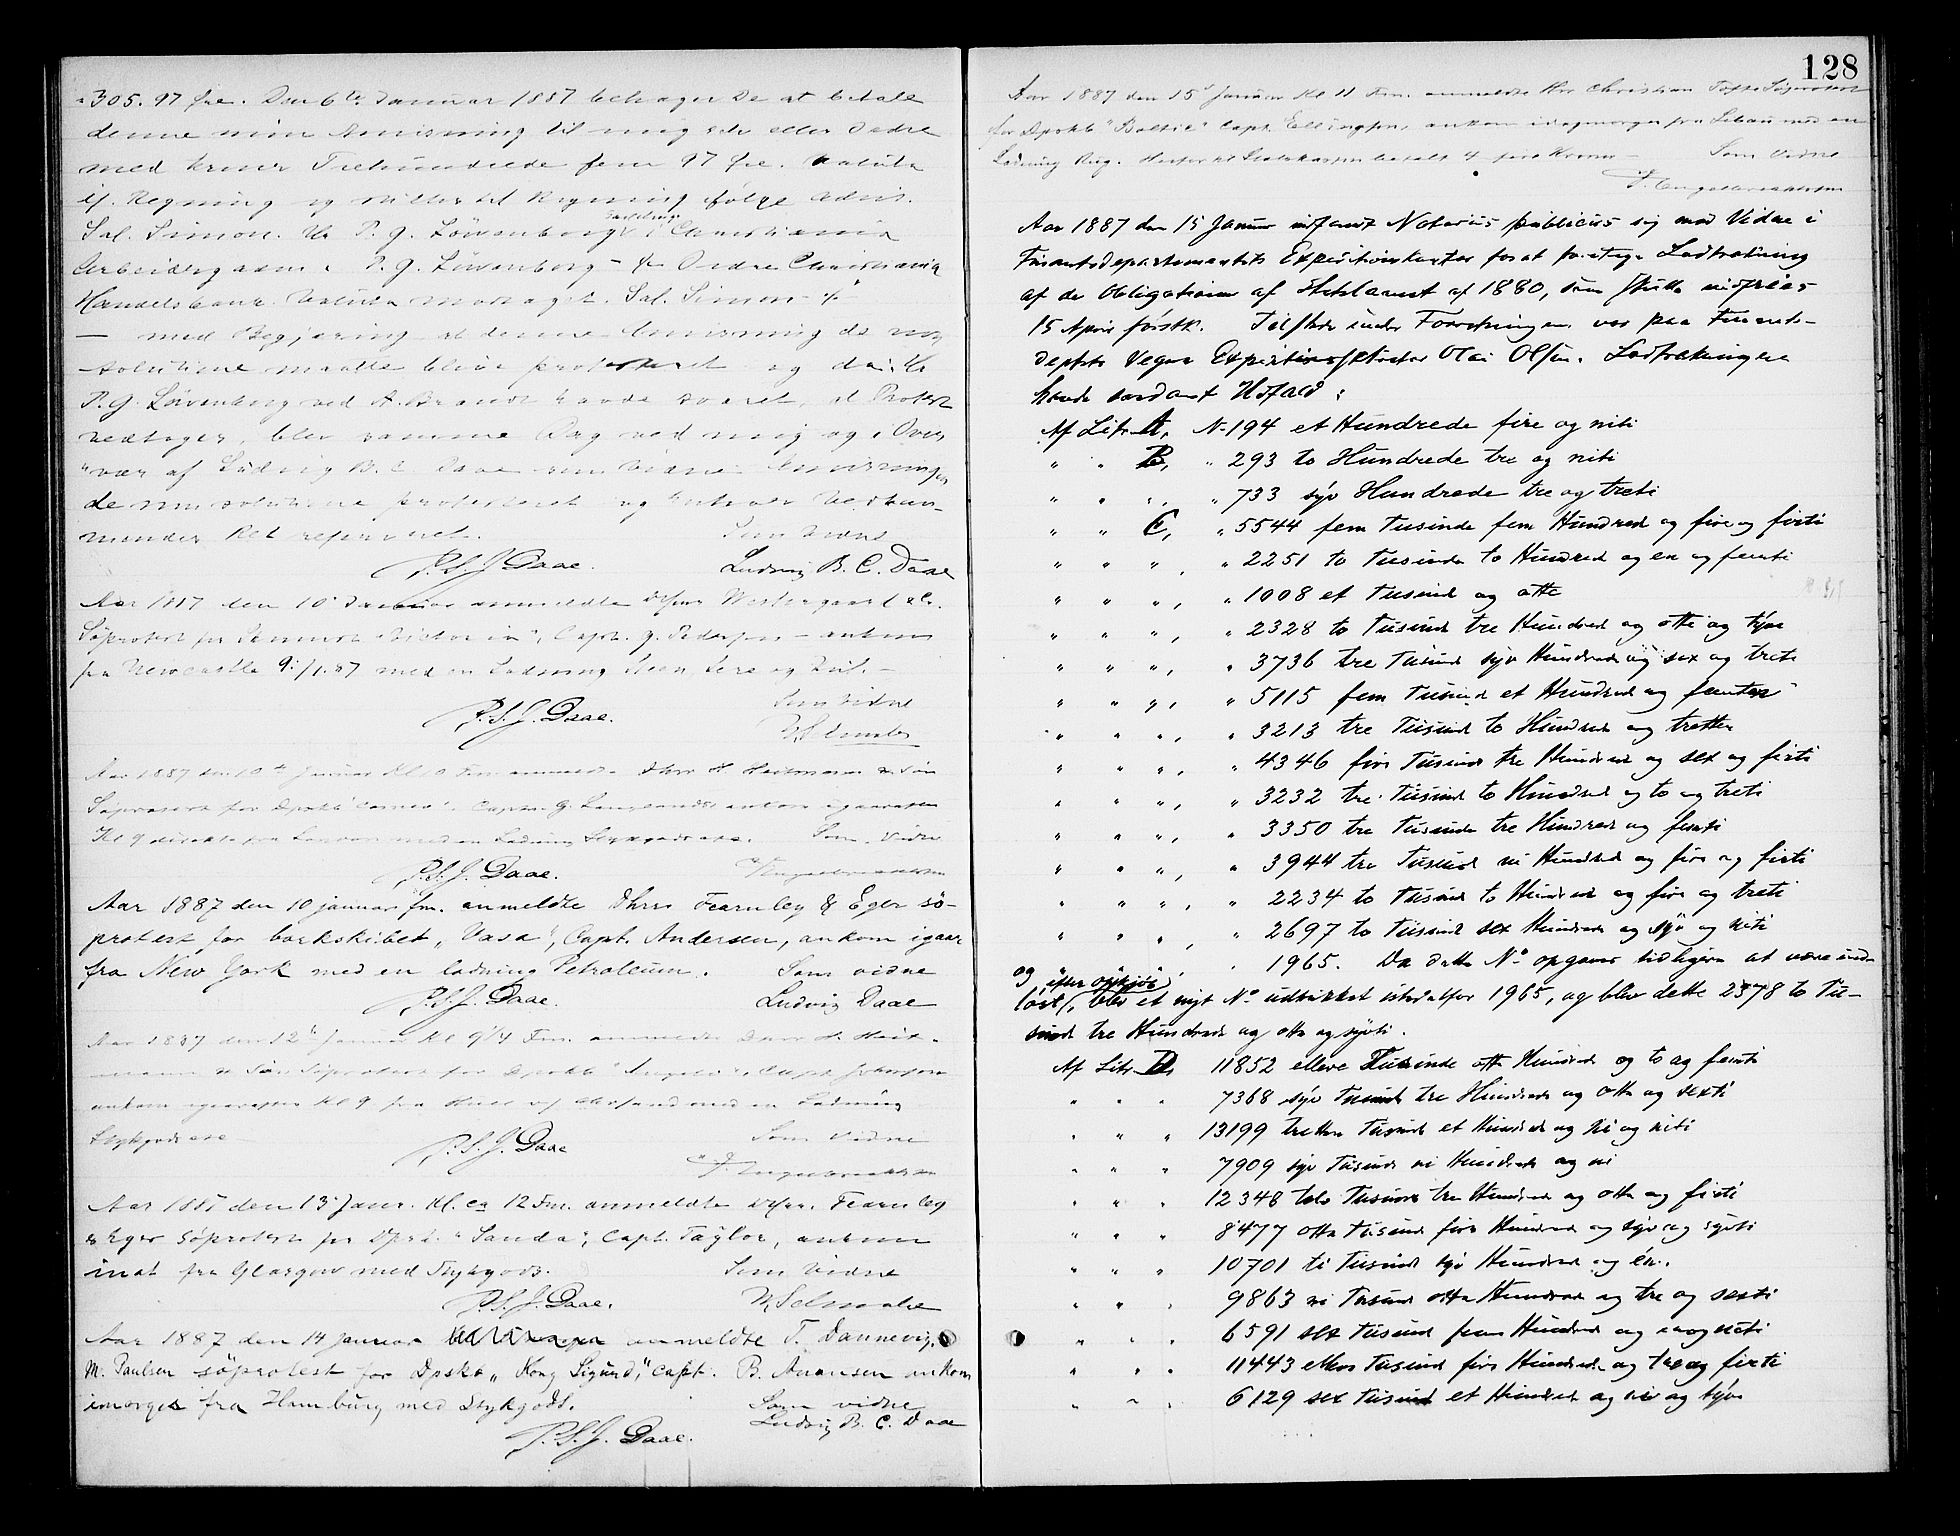 305. 97 Øre. Den 6te Januar 1887 behager De at betale
denne min Anvisning til mig selv eller Ordre
med Kroner Trehundrede fem 97 Øre. Valuta
i Regning og stilles til Regning ifølge Advis.
Sal. Simon. Hr P. G. Löwenborg i Christiania
Arbeidergaden. P. G. Löwenborg – Ordre Christiania
Handelsbank. Valuta modtaget. Sal. Simon
– med Begjæring at denne Anvisning de non
solutione maatte blive protesteret og da Hr
P. G. Löwenborg ved A. Brandt havde svaret, at Protest
vedtages, blev samme Dag ved mig og i Over
vær af Ludvig B. C. Daae som Vidne Anvisningen
de non solutione protesteret og Enhver Vedkom-
mendes Ret reserveret. Som Vidne
P.S.J. Daae. Ludvig B. C. Daae
Aar 1887 den 10 Januar anmeldte Westergaard & Co.
Söprotest for Capt. J. Pedersen – ankom
fra Newcastle 9/1.87 med en Ladning
Som Vidne
P.S.J. Daae.
Aar 1887 den 10de Januar Kl 10 Fm anmeldte Dhrr H. Heitmann & Søn
Søprotest for Dpskb "Cameo". Capt. G. ankom igaaraftes
Kl 9 fra London med en Ladning Stykgods. Som Vidne
P.S.J. Daae.
Aar 1887 den 10 januar fm. anmeldte Dhrr Fearnley & Eger sö-
protest for barkskibet „Vasa", Capt. Andersen, ankom igaar
fra New York med en ladning Petroleum. Som vidne
P.S.J. Daae. Ludvig Daae
Aar 1887 den 12te Januar Kl 9 1/4 Fm. anmeldte Dhrr H. Heit-
mann & Søn Søprotest for Dpskb "Angelo". Capt.
ankom igaaraftes Kl 9 fra Hull med en Ladning
Stykgods
P.S.J. Daae Som Vidne
Aar 1887 den 13 Janr. Kl. ca 12 Fm. anmeldte Fearnley
& Eger Söprotest for Dpsk. "Sanda", Capt. Taylor, ankom
inat fra Glasgow med Stykgods.
Som Vidne
P.S.J. Daae.
Aar 1887 den 14 januar anmeldte T. Dannevig,
M. Paulsen söprotest for Dpskb „Kong Sigurd", Capt. B. Anansen ankom
imorges fra Hamburg med Stykgods. Som vidne
P.S.J. Daae. Ludvig B. C. Daae
128
Aar 1887 den 15de Januar Kl 11 Fm. anmeldte Hr Christian Søprotest
for Dpskb "Baltic" Capt. Ellingsen, ankom imorges fra Libau med en
Ladning Rug. betalt 4 fire Kroner – Som Vidne
Aar 1887 den 15 Januar indfandt Notarius publicus sig med Vidne i
Finantsdepartementets Expeditionskontor for at foretage Lodtrækning
af de Obligationer af Statslaanet af 1880, som skulle indfries
15 April førstk. Tilstede under Forretningen var paa Finants-
deptets Vegne Expeditionssekretær Olai Olsen. Lodtrækningen
havde saadant Udfald:
Af Litr A, N. 194 et Hundrede fire og niti
" " B, " 293 to Hundrede tre og niti
" " " " 733 syv Hundrede tre og treti
" " C, " 5544 fem Tusinde fem Hundred og fire og firti
" " " " 2251 to Tusinde to Hundred og en og femti
" " " " 1008 et Tusind og otte
" " " " 2328 to Tusind tre Hundred og otte og tyve
" " " " 3736 tre Tusind syv Hundred og sex og treti
" " " " 5115 fem Tusind et Hundred og femten
" " " " 3213 tre Tusind to Hundred og tretten
" " " " 4346 fire Tusind tre Hundred og sex og firti
" " " " 3232 tre Tusind to Hundred og to og treti
" " " " 3350 tre Tusinde tre Hundred og femti
" " " " 3944 tre Tusind ni Hundred og fire og firti
" " " " 2234 to Tusind to Hundred og fire og treti
" " " " 2697 to Tusind sex Hundred og syv og niti
" 1965. Da dette No opgaves tidligere at være ind-
løst, blev et nyt No udtrukket istedetfor 1965, og blev dette 2378 to Tu-
sind tre Hundrede og otte og sytti.
Af Litr D 11852 elleve Tusinde otte Hundred og to og femti
" " " 7368 syv Tusind tre Hundrede og otte og sexti
" " " 13199 tretten Tusind et Hundred og ni og niti
" " " 7909 syv Tusind ni Hundrede og ni
" " " 12348 tolv Tusind tre Hundred og otte og firti
" " " 8477 otte Tusind fire Hundred og syv og sytti
" " " 10701 ti Tusind syv Hundred og én.
" " " 9863 ni Tusind otte Hundred og tre og sexti
" " " 6591 sex Tusind fem Hundred og en og niti
" " " 11443 elleve Tusind fire Hundrede og tre og firti
" " " 6129 sex Tusind et Hundred og ni og tyve